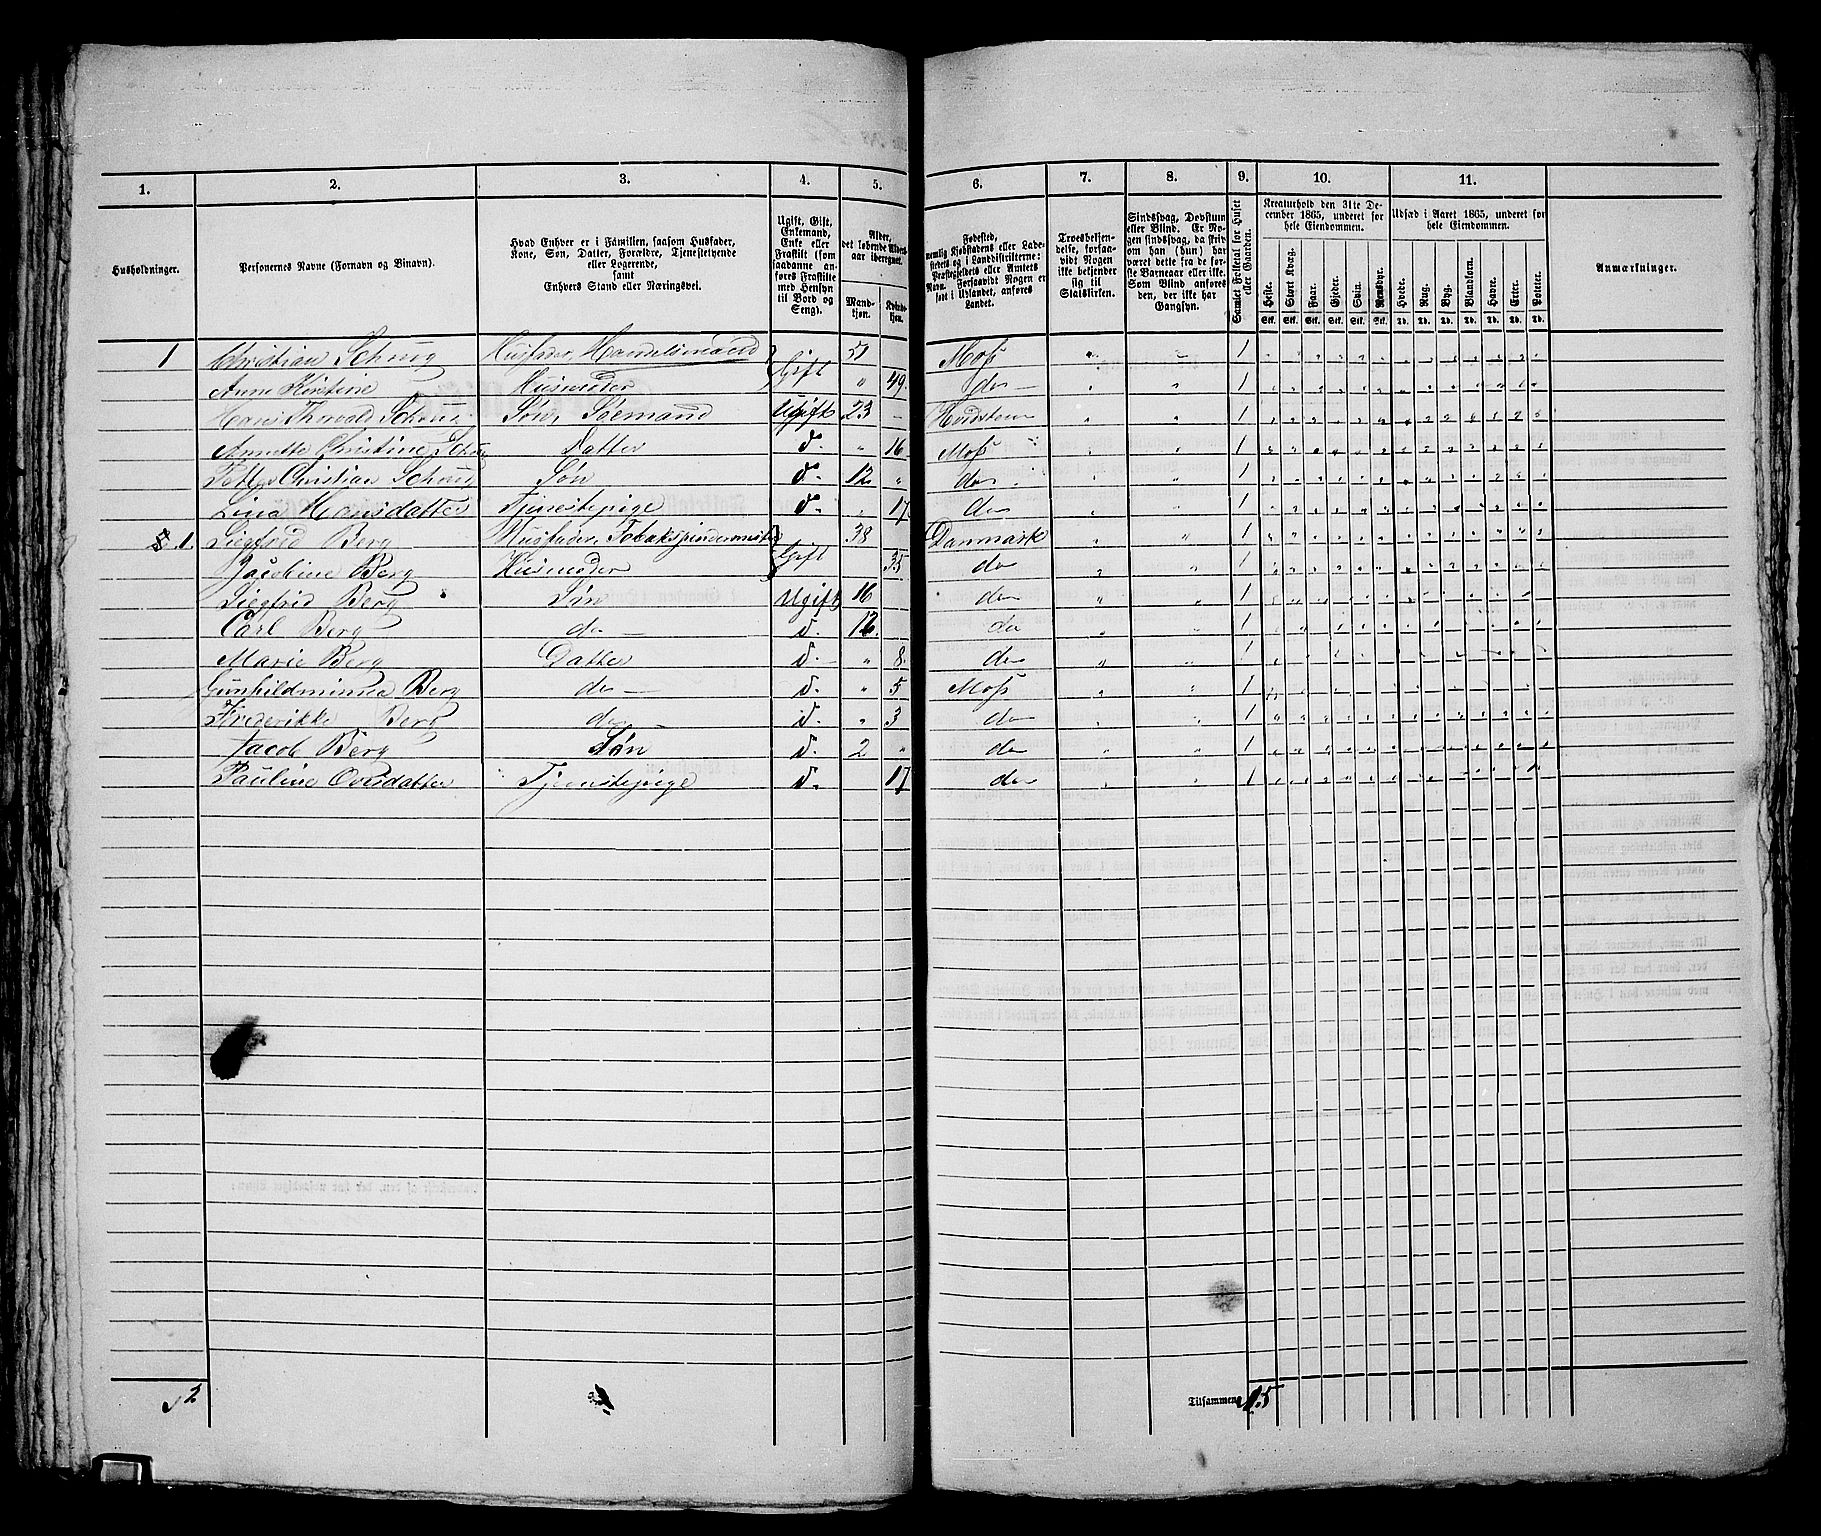 1. 2. 3. 4. 5. 6. 7. 8. 9. 10. 11.
Husholdninger.
Personernes Navne (Fornavn og Binavn).
Hvad Enhver er i Familien, saasom Husfader, Kone, Søn, Datter, Forældre, Tjenestetyende eller Logerende, samt Enhvers Stand eller Næringsvei.
Ugift, Gift, Enkemand, Enke eller Fraskilt (som saadanne anføres Fraskilte med Hensyn til Bord og Seng).
Alder, det løbende Alders-aar iberegnet.
Mand-kjøn. Kvinde-kjøn.
Fødested, nemlig Kjøbstadens eller Lade-stedets og i Landdistrikterne: Præstegjeldets eller Amtets Navn. Forsaavidt Nogen er født i Udlandet, anføres Landet.
Troesbekjen-delse, forsaa-vidt Nogen ikke bekjender sig til Statskirken.
Sindssvag, Døvstum eller Blind. Er No-gen sindssvag, da skriv om han (hun) har været dette fra de før-ste Barneaar eller ikke. Som Blind anføres den, der ikke har Gangsyn.
Samlet Folketal for Huset eller Gaarden.
Kreaturhold den 31te De-cember 1865, underet for hele Eiendommen.
Heste. Stort Kvæg. Faar. Gjeder. Svin. Rensdyr.
Stk. Stk. Stk. Stk. Stk. Stk.
Udsæd i Aaret 1865, underet for hele Eiendommen.
Hvede. Rug. Byg. Blandkorn. Havre. Erter. Poteter.
Td. Td. Td. Td. Td. Td. Td.
Anmærkninger.
1 Christian Schoug Husfader, Handelsmand Gift 51 Moss 1
Anne Kirstine Husmoder 49 do 1
Hans Thorvald Schoug Søn, Sømand Ugift 23 1
Annette Christine Schoug Datter d. 16 Moss 1
Christian Schoug Søn d. 12 do 1
Lina Hansdatter Tjenestepige d. 17 do 1
1. Siegfrid Berg Husfader, Tobakspindermester Gift 38 Danmark 1
Jacobine Berg Husmoder 35 do 1
Siegfrid Berg Søn Ugift 16 do 1
Carl Berg do d. 12 do 1
Marie Berg Datter d. 8 do 1
Gunhildminna Berg do d. 5 Moss 1
Frederikke Berg do d. 3 do 1
Jacob Berg Søn d. 2 do 1
Pauline Olsdatter Tjenestepige d. 17 do 1
2 Tilsammen 15